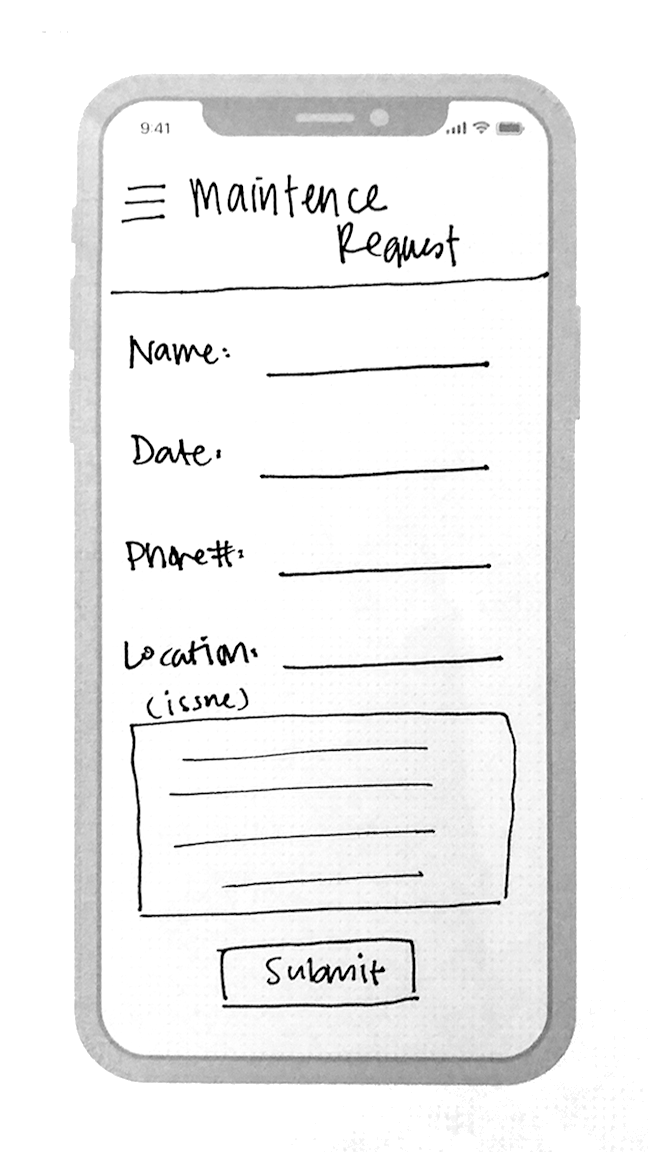 9:41
Maintence
Request
Name:
Date:
Phone#:
Location:
(issue)
Submit